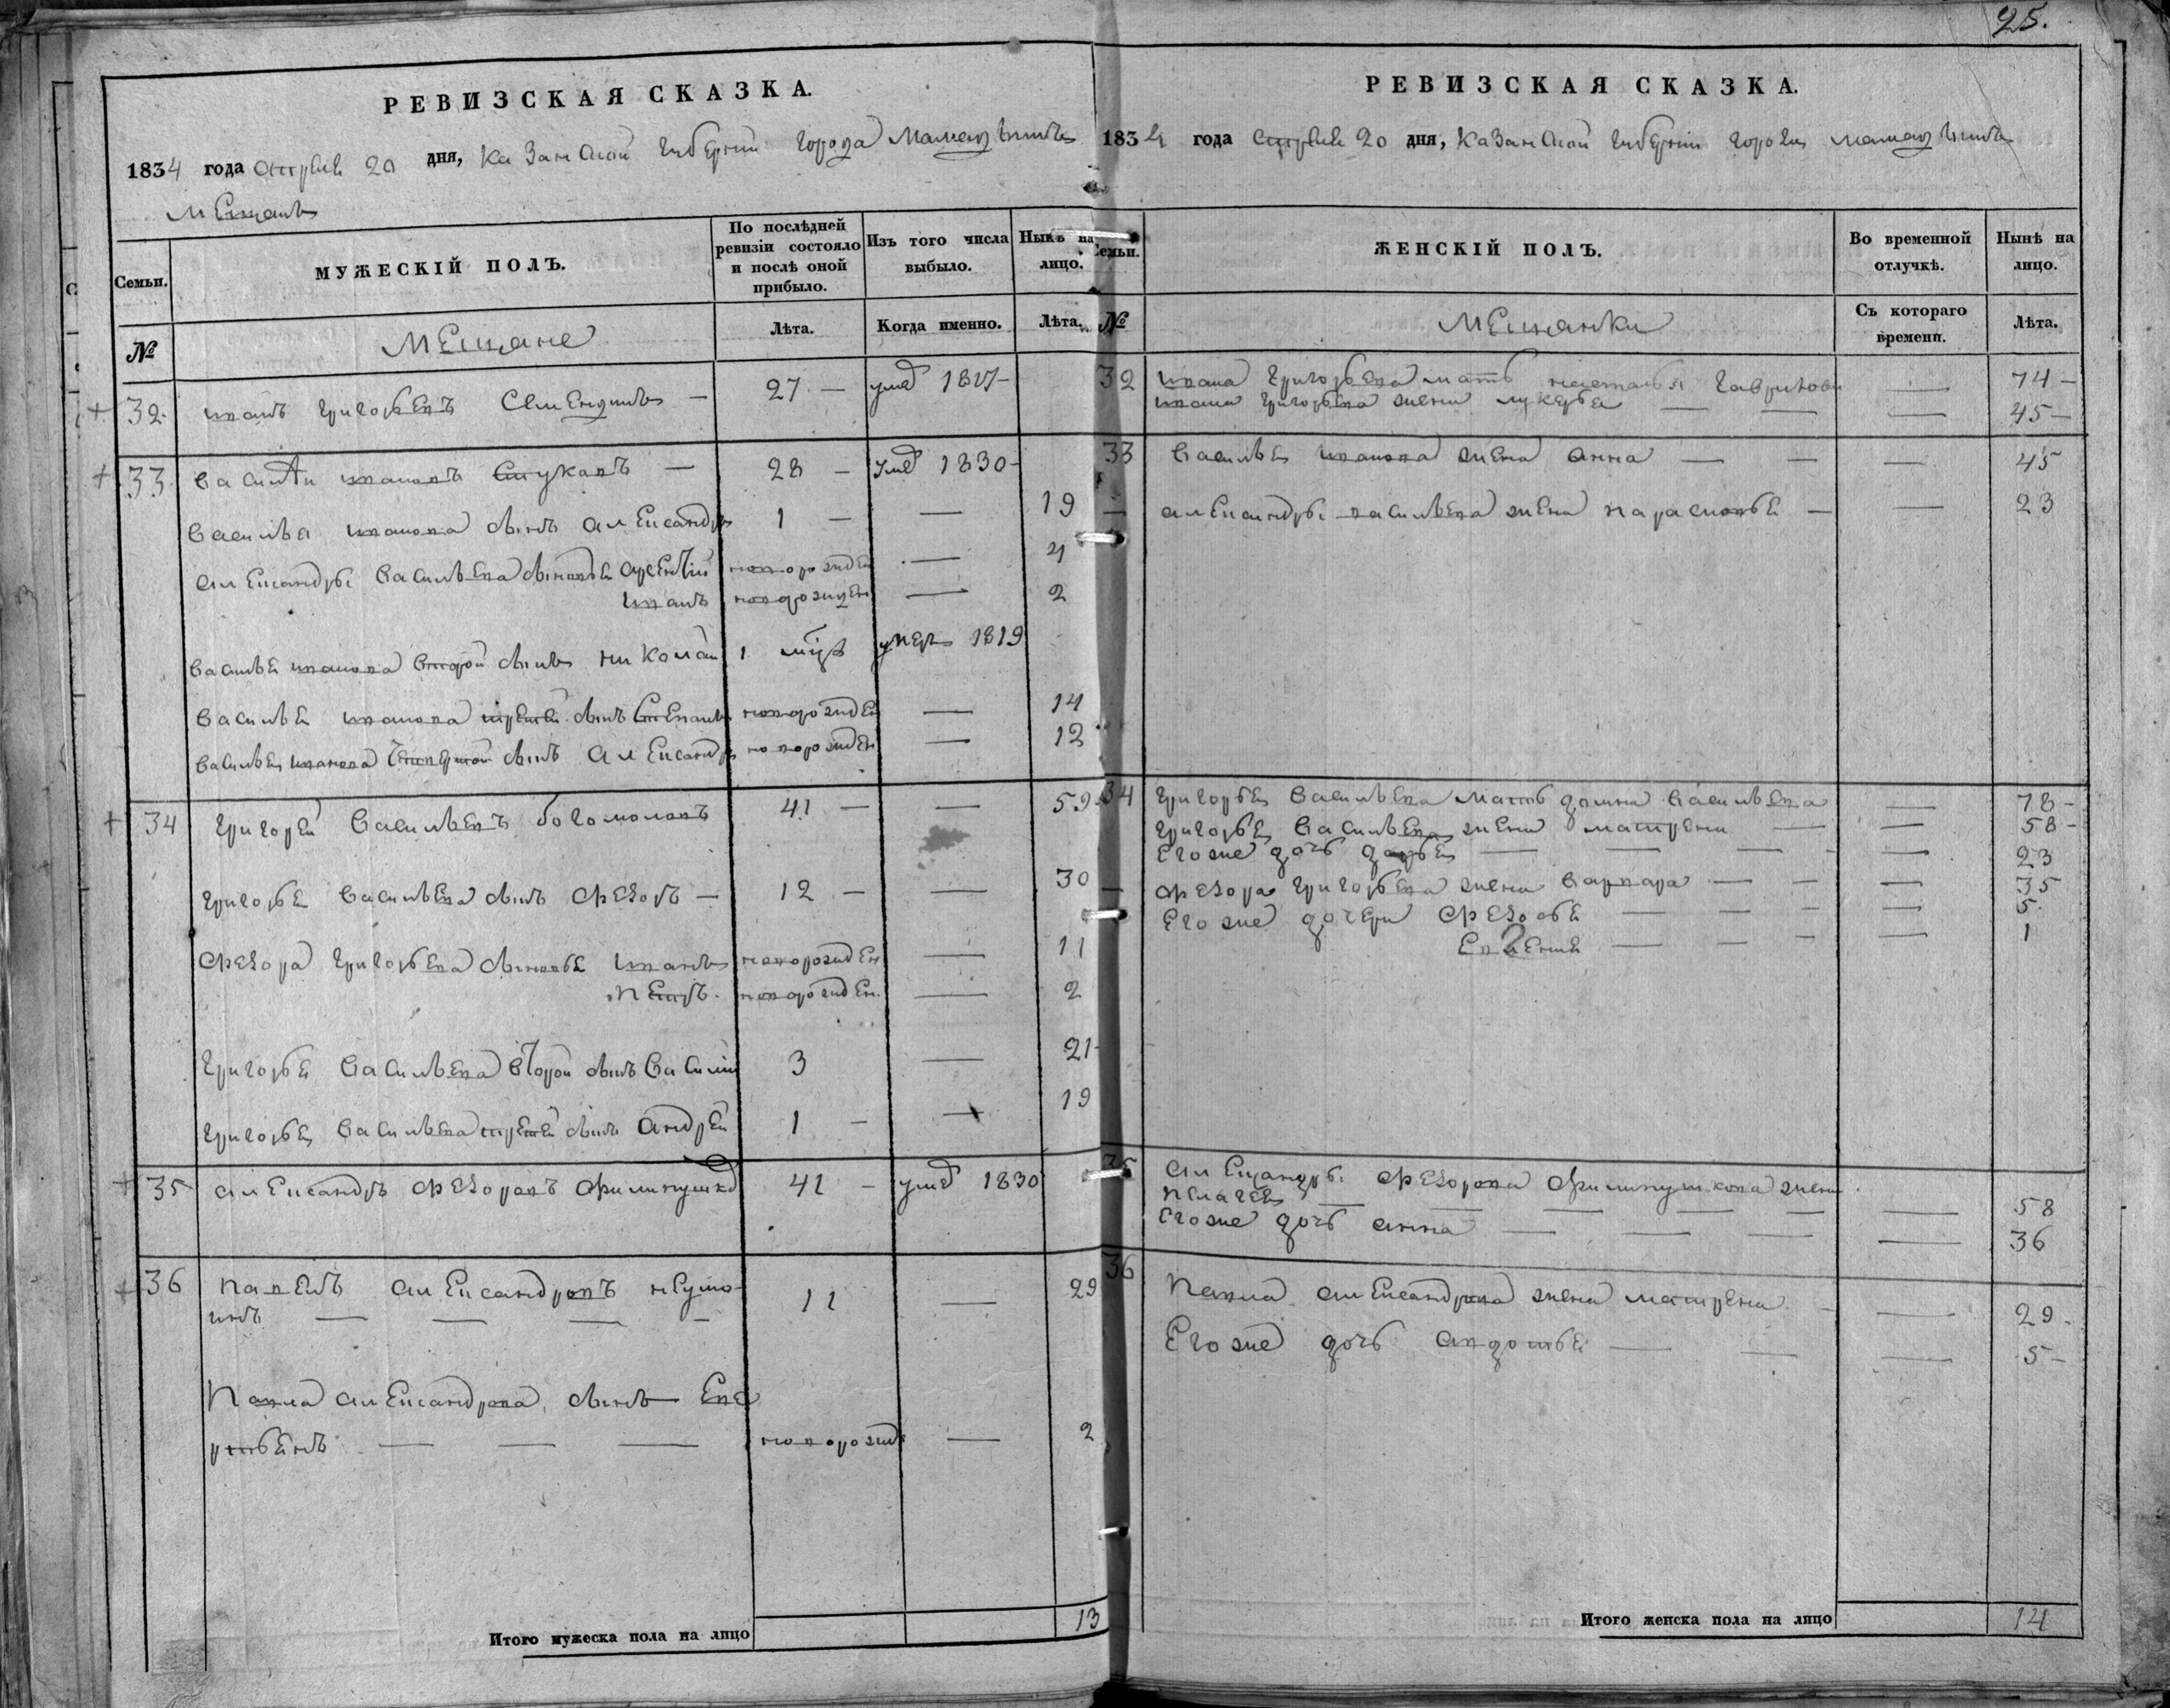 25.
РЕВИЗСКАЯ СКАЗКА.
1834 года Апреля 20 дня, Казанской губернии города Мамадыша
Мещанъ
Семьи.
МУЖЕСКІЙ ПОЛЪ.
По послѣдней ревизіи состояло и послѣ оной прибыло.
Изъ того числа выбыло.
Нынѣ на лицо.
№
Мещане
Лѣта.
Когда именно.
Лѣта.
32 Иванъ Григорьевъ — 27 — умеръ
33 Василѣй Ивановъ — 28 — умеръ 1830 —
Василья Иванова сынъ Александръ 1 — — 19
Александры Васильева сыновья новорожден — 4
Иванъ новорожден — 2
Василья Иванова второй сынъ Николай 1 мѣць умеръ 1819
Василья Иванова третей сынъ Степанъ новорожден — 14
Василья Иванова четвертой сынъ Александръ новорожден — 12
34 Григорей Васильевъ Богомоловъ 41 — — 59
Григорья Васильева сынъ Федоръ — 12 — — 30
Федора Григорьева сыновья Иванъ новорожден — 11
Петръ новорожден. — 2
Григорья Васильева второй сынъ Василий 3 — 21
Григорья Васильева третей сынъ Андрей 1 — — 19
35 Александръ Федоровъ Филипушков 41 — умеръ 1830
36 Павелъ Александровъ 11 — 29
Павла Александрова сынъ — новорожд — 2
Итого мужеска пола на лицо 13
РЕВИЗСКАЯ СКАЗКА.
1834 года Апреля 20 дня, Казанской губернии города Мамадыша
Семьи.
ЖЕНСКІЙ ПОЛЪ.
Во временной отлучкѣ.
Нынѣ на лицо.
№
Мещанки
Съ котораго времени.
Лѣта.
32 Ивана Григорьева мать Наталья Гаврилова — 74 —
Ивана Григорьева жена Лукерья — — — 45 —
33 Василья Иванова жена Анна — — — 45
— Александры Васильева жена Парасковья — — 23
34 Григорья Васильева мать Домна Васильева — 78 —
Григорья Васильева жена Матрена — — 58 —
Его же дочь Дарья — — — — 23
— Федора Григорьева жена Варвара — — — 35
Его же дочери Федосья — — — — 5
Евгения — — — — 1
35 Александры Федорова Филипушкова жена
Пелагея — — — — — — 58
Его же дочь Анна — — — — 36
36 Павла Александрова жена Матрена — — 29
Его же дочь Авдотья — — — 5 —
Итого женска пола на лицо 14